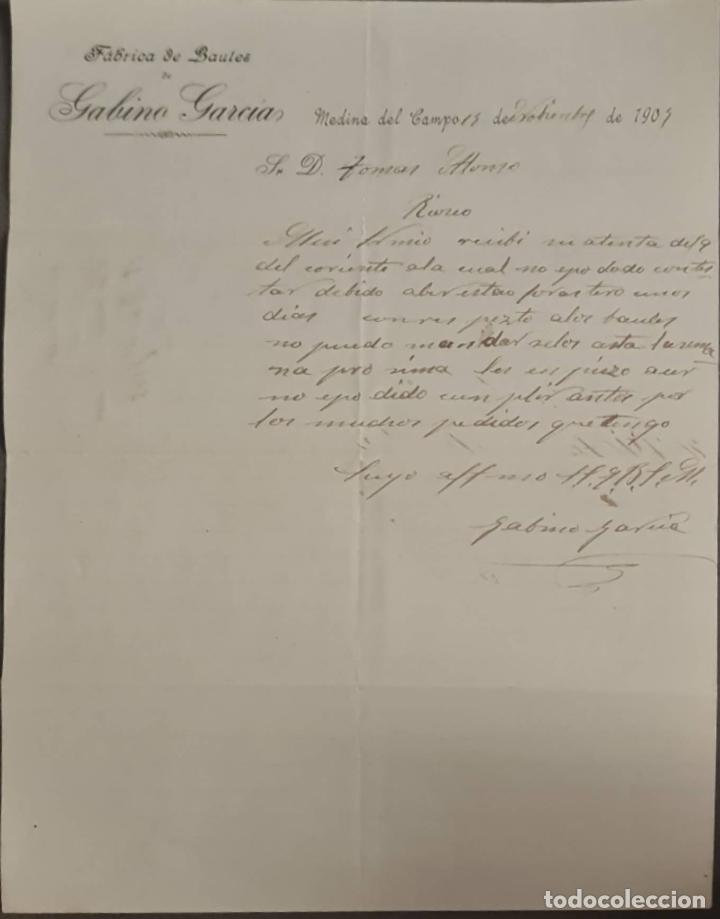 Fábrica de Baules
de
Gabino García
Medina del Campo 15 de Nobienbre de 1905
Sr. D. Tomas Alonso
Rioseco
Mui S mio recibi su atenta del 9
del coriente ala cual no epodado contes
tar debido aber estao forastero unos
dias con res pezto alos baules
no puedo mandar selos asta la sema
na pro sima los en piezo aer
no epo dido cun plir antes por
los muchos pedidos que tengo
Suyo affmo S.S.Q.B.S.M.
Gabino Garcia
todocoleccion